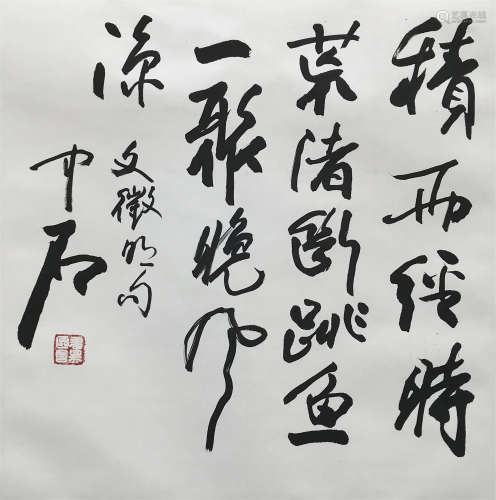 積雨經時
荒渚斷跳魚
一聚晚風
涼
文徵明句
中石